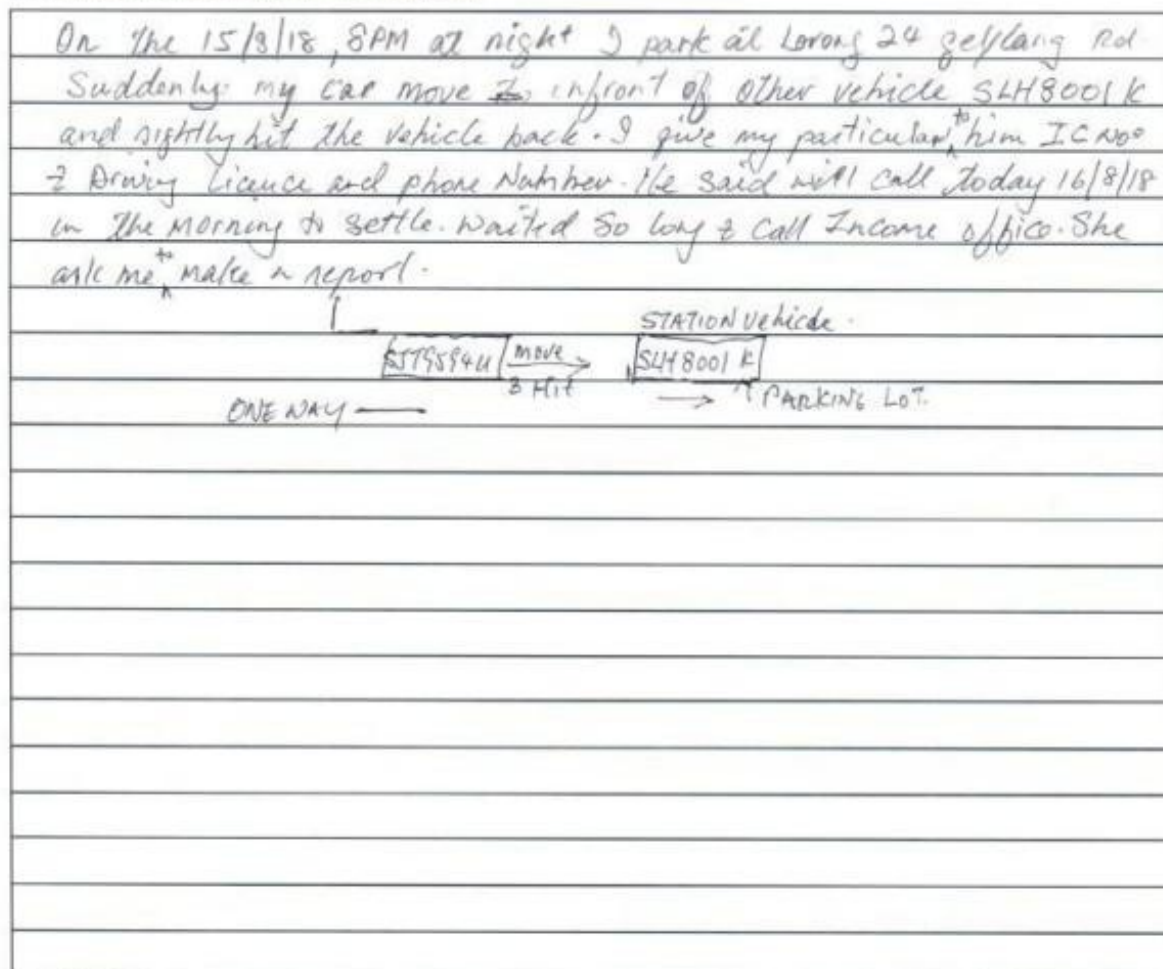 On the 15/8/18, 8PM at night I park at Lorong 24 gelylang Rd.
Suddenly my car move infront of other vehicle SLH8001K
and sightly hit the vehicle back. I give my particular to him IC No
& Driving Licence and phone Number. He said will call today 16/8/18
in the Morning to settle. waited so long & call Income office. She
ask me to make a report.
STATION Vehicle.
SJT9594U move SLH8001 K
& Hit PARKING LOT.
ONE WAY